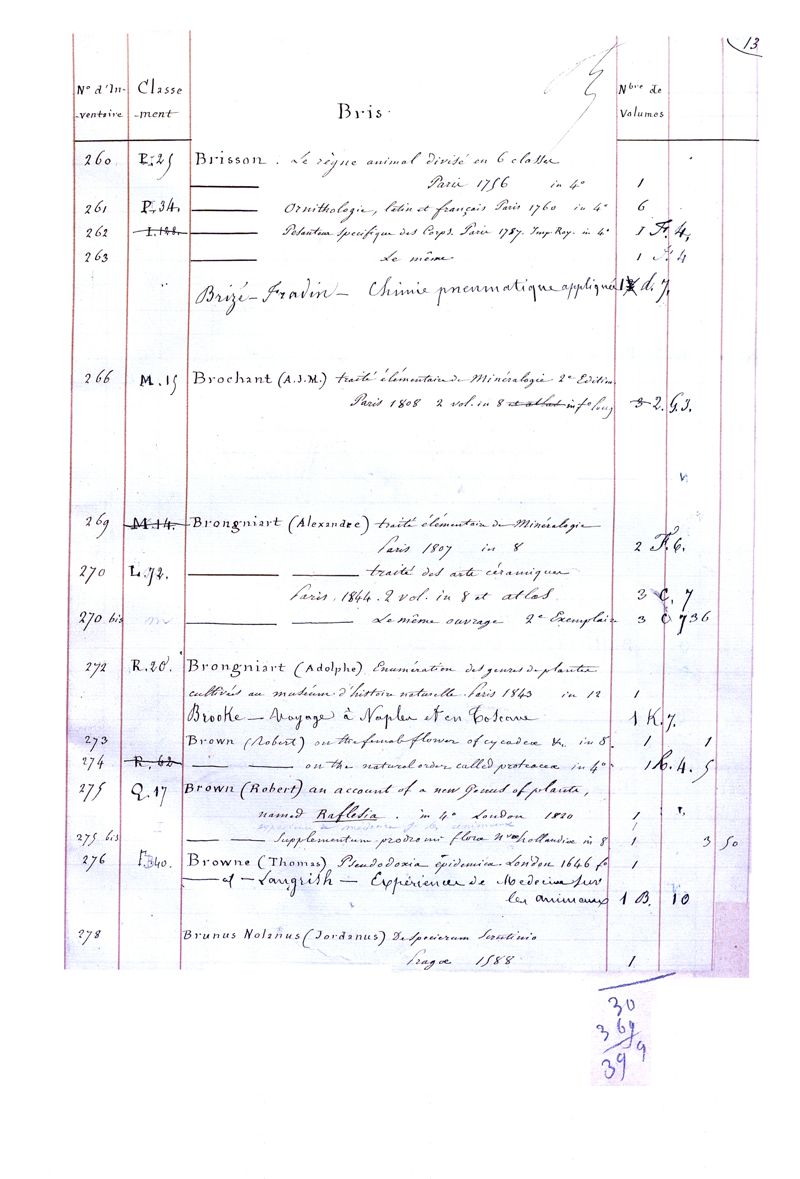 13
N° d'In- Classe Nbre de
-ventaire -ment Bris. Volumes
260 P.25 Brisson. Le règne animal divisé en 6 classes
Paris 1756 in 4° 1
261 P.34. Ornithologie, latin et français Paris 1760 in 4° 6
262 Pesanteur spécifique des Corps. Paris 1787. Imp. Roy. in 4° 1 F. 4.
263 Le même 1 F. 4
Brizé-Fradin - Chimie pneumatique appliquée 1 d. 7.
266 M.15 Brochant (A.J.M.) traité élémentaire de Minéralogie 2e Edition
Paris 1808 2 vol. in 8 et atlas in f° long 3 2. G.3.
269 M.14. Brongniart (Alexandre) traité élémentaire de Minéralogie
Paris 1807 in 8 2 F. 6.
270 L.72. traité des arts céramiques
Paris. 1844. 2 vol. in 8 et atlas. 3 C. 7
270 bis Le même ouvrage 2e Exemplaire 3 C 7 36
272 R.20. Brongniart (Adolphe). Enumération des genres de plantes
cultivés au muséum d'histoire naturelle. Paris 1843 in 12 1
Brooke - Voyage à Naples et en Toscane 1 K. 7.
273 Brown (Robert) on the female flower of cycadeæ &c. in 8. 1 1
274 R. 62 on the natural order called proteaceæ in 4° 1 b. 4. 5
275 Q.17 Brown (Robert) an account of a new Genus of plants,
named Raflesia. in 4° London 1820 1
275 bis Supplementum prodromi floræ Novæ hollandiæ in 8 1 3 50
276 340. Browne (Thomas) Pseudodoxia epidemica. London 1646 f° 1
et - Langrish - Expériences de Médecine sur
les animaux 1 B. 10
278 Brunus Nolanus (Jordanus) De specierum Scrutinio
Pragæ 1588 1
30
369
399